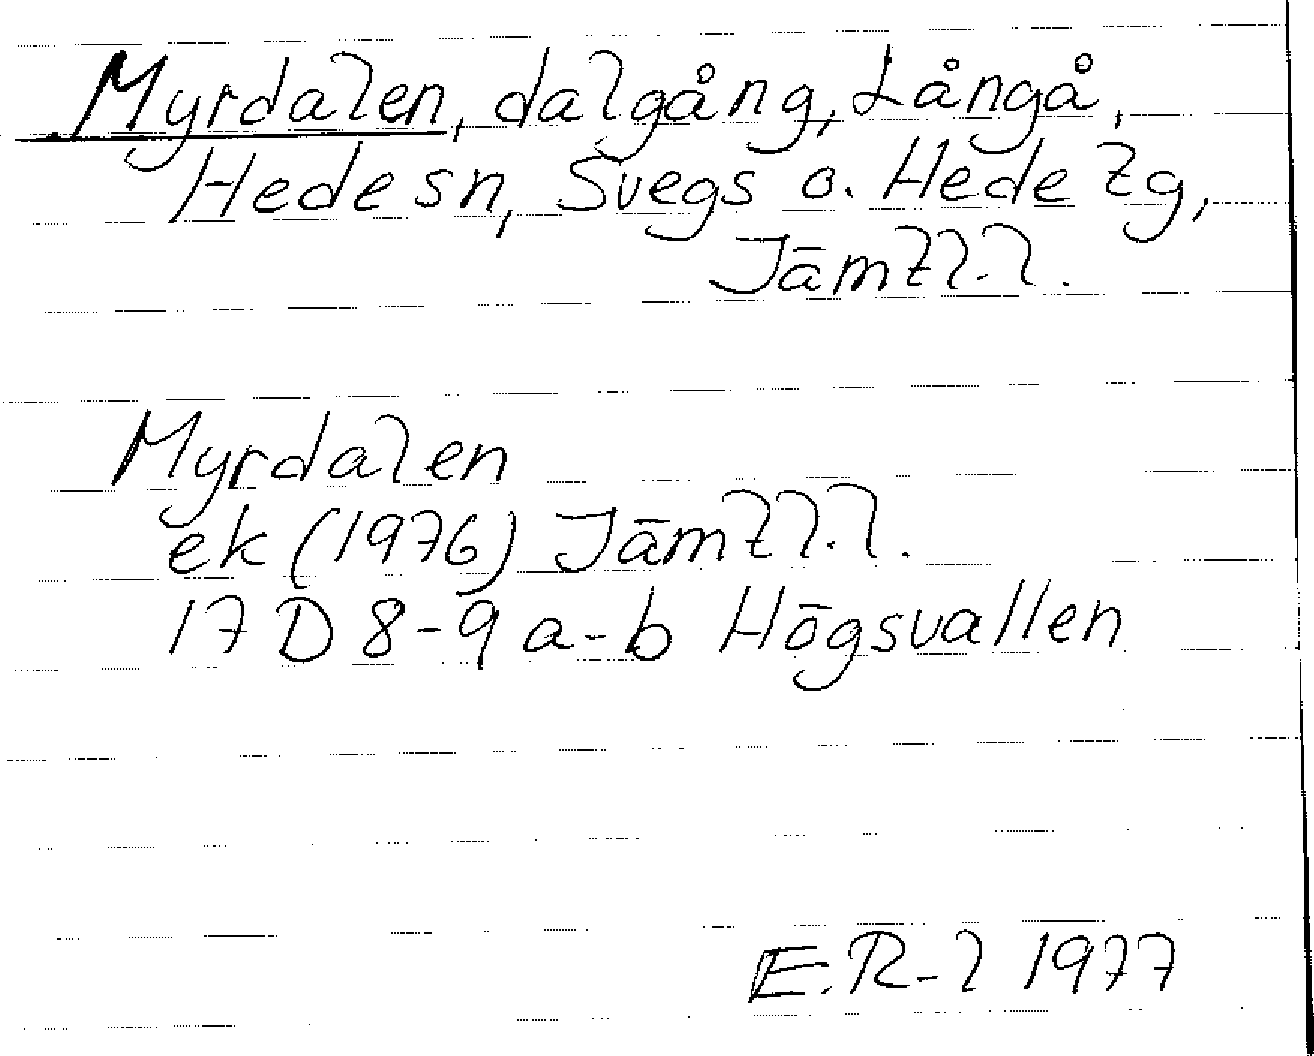 Myrdalen, dalgång, Långå,
Hede sn, Svegs o. Hede tg,
Jämtl. l.
Myrdalen
ek (1976) Jämtl. l.
17 D 8-9 a-b Högsvallen
E. R-l 1977